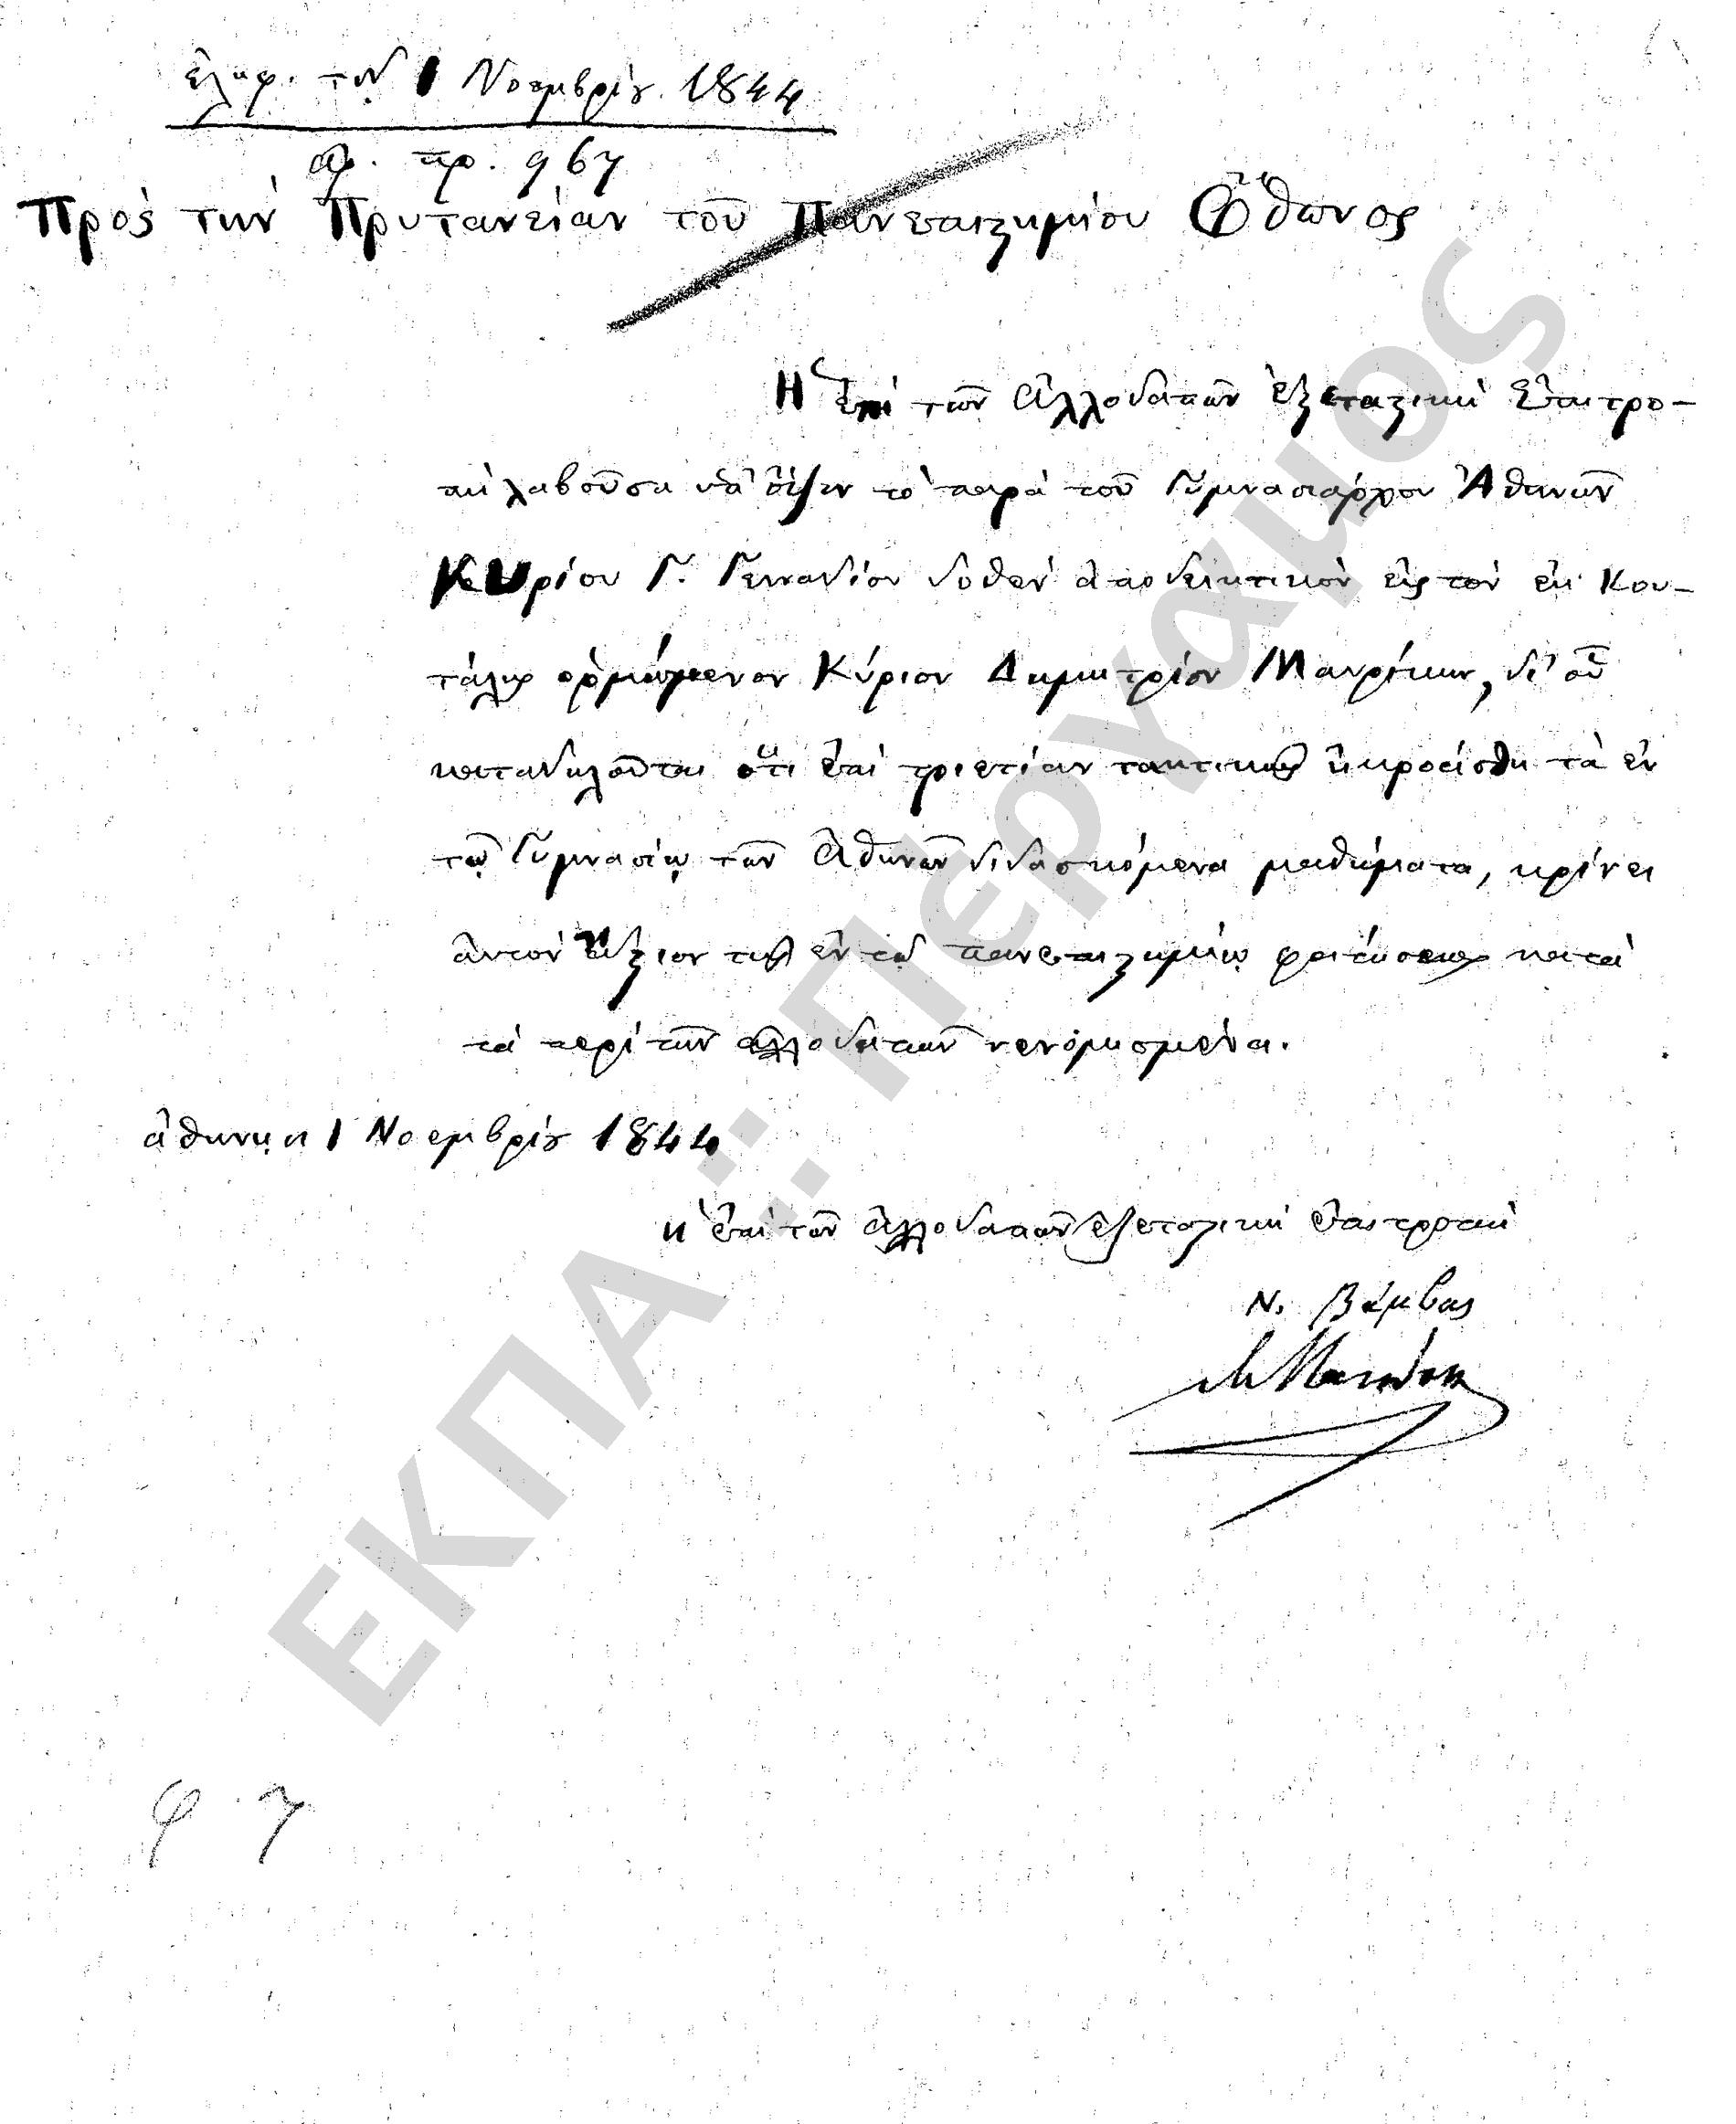 ἐλήφ. τῇ 1 Νοεμβρίου 1844
ἀρ. πρ. 967
Πρὸς τὴν Πρυτανείαν τοῦ Πανεπιστημίου Ὄθωνος
Ἡ ἐπὶ τῶν ἀλλοδαπῶν ἐξεταστικὴ ἐπιτρο-
πὴ λαβοῦσα ὑπ' ὄψιν τὸ παρὰ τοῦ Γυμνασιάρχου Ἀθηνῶν
Κυρίου Γ. Γενναδίου δοθὲν ἀποδεικτικὸν εἰς τὸν ἐκ Κου-
τάλης ὁρμώμενον Κύριον Δημήτριον Μαυρίκην, δι' οὗ
καταδηλοῦται ὅτι ἐπὶ τριετίαν τακτικῶς ἠκροάσθη τὰ ἐν
τῷ Γυμνασίῳ τῶν Ἀθηνῶν διδασκόμενα μαθήματα, κρίνει
αὐτὸν ἄξιον τῆς ἐν τῷ πανεπιστημίῳ φοιτήσεως κατὰ
τὰ περὶ τῶν ἀλλοδαπῶν νενομισμένα.
Ἀθήνῃσι 1 Νοεμβρίου 1844
ἡ ἐπὶ τῶν ἀλλοδαπῶν ἐξεταστικὴ ἐπιτροπὴ
Ν. Βάμβας
φ. 7
ΕΚΠΑ :: Πέργαμος